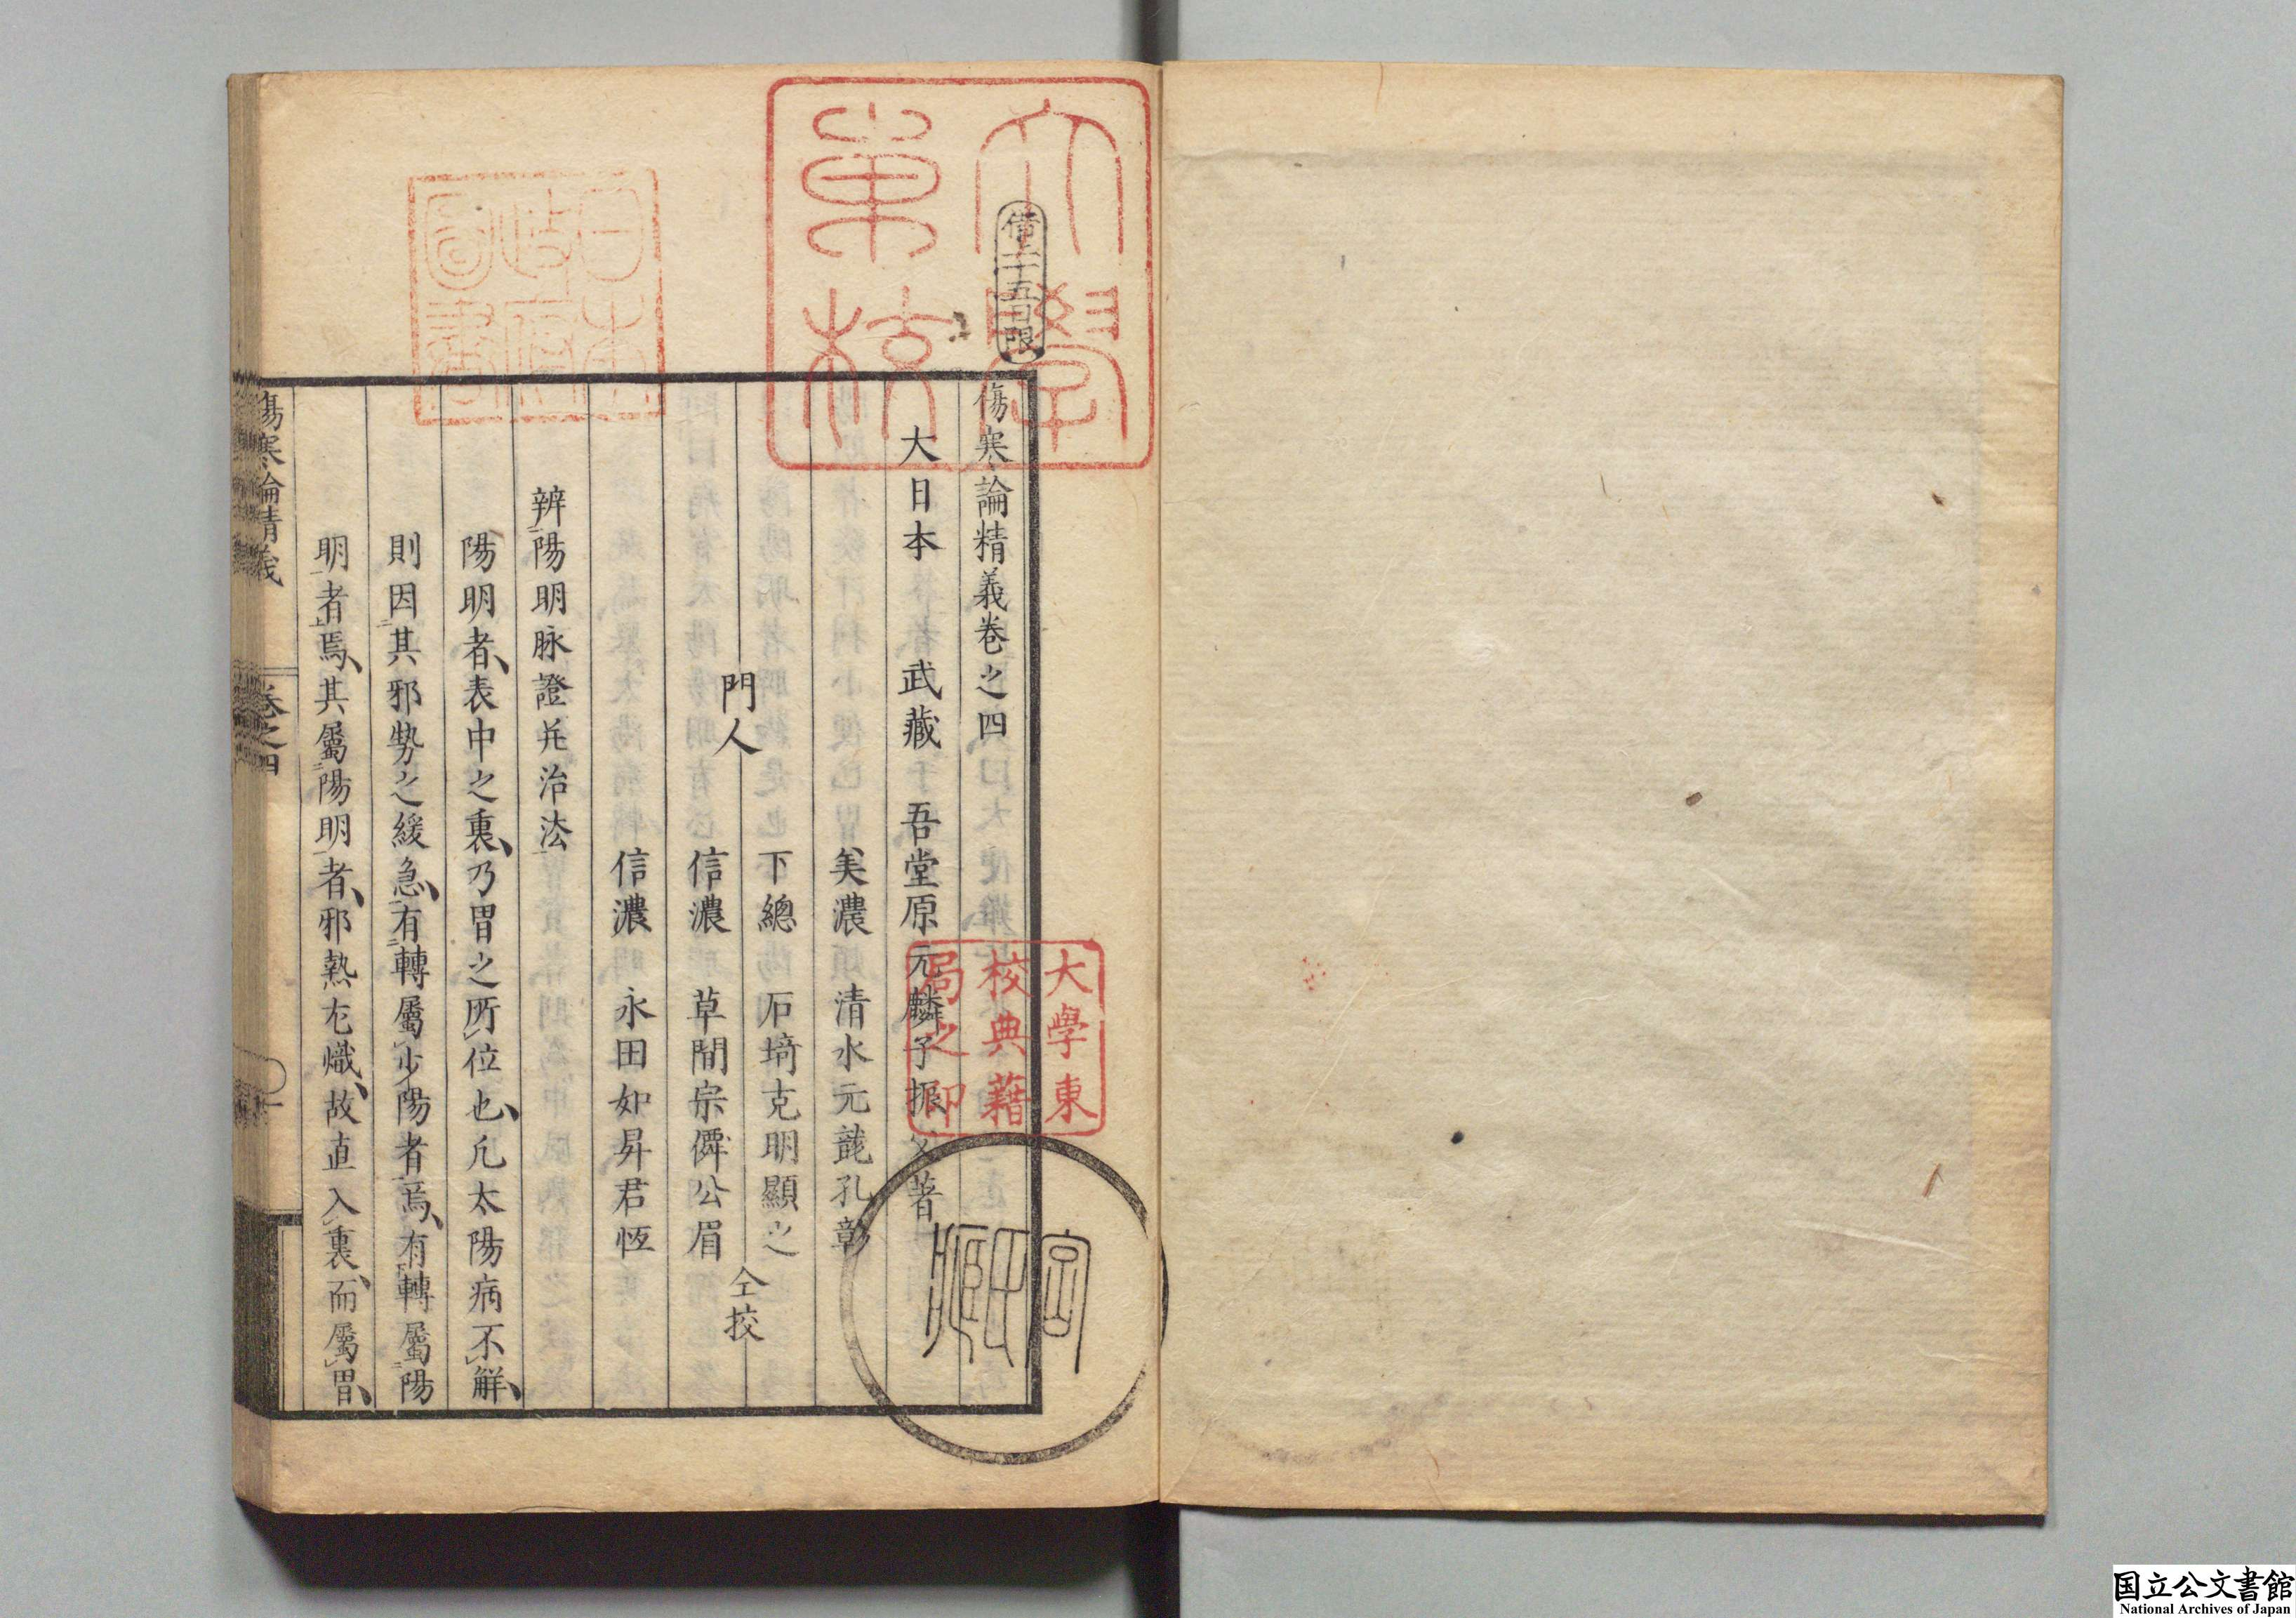 傷寒論精義卷之四
大日本 武藏 吾堂原元麟子振父著
美濃 清水元 孔彰
門人
下總 石埼克明顯之
信濃 草間宗僲公眉
仝挍
信濃 永田如昇君恆
辨陽明脉證并治法
陽明者、表中之裏、乃胃之所位也、凡太陽病不解、
則因其邪勢之緩急、有轉屬少陽者焉、有轉屬陽
明者焉、其屬陽明者、邪熱尤熾、故直入裏、而屬胃、
傷寒論精義
卷之四
一
大學東校
大學東
校典籍
局之印
日本政府圖書
備二十五日限
国立公文書館
National Archives of Japan